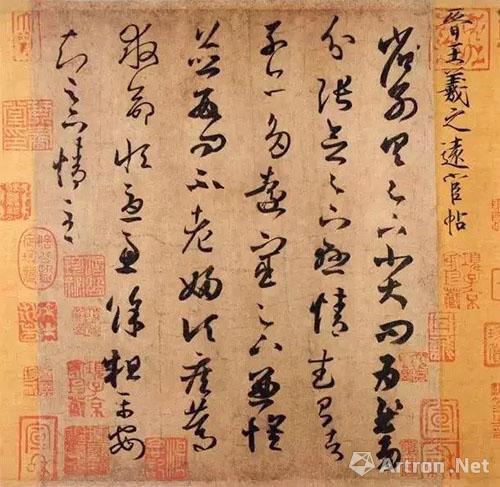 晉王羲之遠宦帖
省別具足下小大問為慰多
分張念足下懸情武昌諸
子亦多遠宦足下兼懷
並數問不老婦頃疾篤
救命恒憂慮餘粗平安
知足下情至
Artron.Net